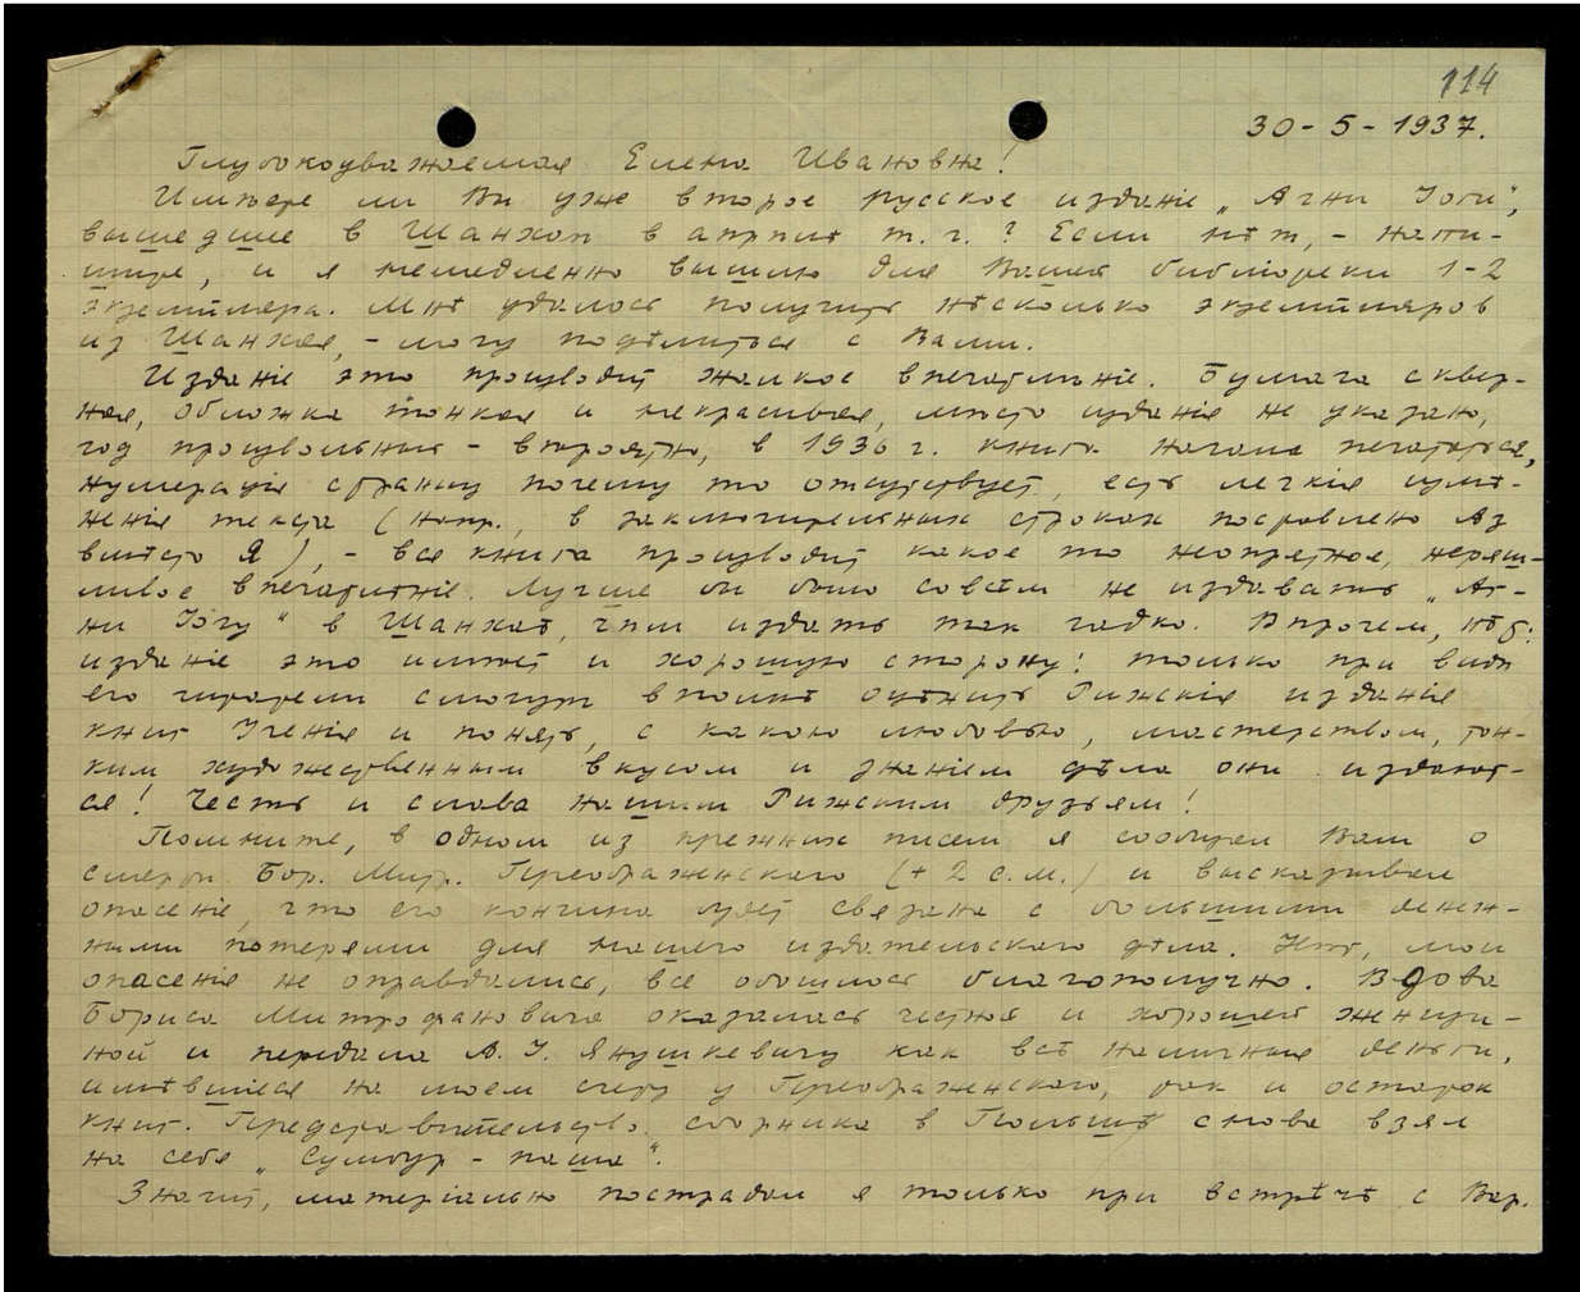 114
30-5-1937.
Глубокоуважаемая Елена Ивановна!
Имѣете ли Вы уже второе русское изданіе „Агни Іоги",
вышедшее в Шанхаѣ в апрѣлѣ т. г.? Если нѣт, - напи-
шите, и я немедленно вышлю для Вашей библіотеки 1-2
экземпляра. Мнѣ удалось получить нѣсколько экземпляров
из Шанхая, - могу подѣлиться с Вами.
Изданіе это производит жалкое впечатлѣніе. Бумага сквер-
ная, обложка тонкая и некрасивая, мѣсто изданія не указано,
год произвольный - вѣроятно, в 1936 г. книга начала печататься,
нумерація страниц почему то отсутствует, есть легкія измѣ-
ненія текста (напр., в заключительных строках поставлено Аз
вмѣсто Я), - вся книга производит какое то неопрятное, неряш-
ливое впечатлѣніе. Лучше бы было совсѣм не издавать „Аг-
ни Іогу" в Шанхаѣ, чѣм издать так гадко. Впрочем, нѣт:
изданіе это имѣет и хорошую сторону: только при видѣ
его читатели смогут вполнѣ оцѣнить Рижскія изданія
книг Ученія и понять, с какою любовью, мастерством, тон-
ким художественным вкусом и знаніем дѣла они издают-
ся! Честь и слава нашим Рижским друзьям!
Помните, в одном из прежних писем я сообщал Вам о
смерти Бор. Митр. Преображенскаго (+ 2 с.м.) и высказывал
опасеніе, что его кончина будет связана с большими денеж-
ными потерями для нашего издательскаго дѣла. Нѣт, мои
опасенія не оправдались, все обошлось благополучно. Вдова
Бориса Митрофановича оказалась честной и хорошей женщи-
ной и передала А. І. Янушкевичу как всѣ наличныя деньги,
имѣвшіеся на моем счету у Преображенскаго, так и остаток
книг. Представительство сборника в Польшѣ снова взял
на себя „Сумбур-паша".
Значит, матеріально пострадал я только при встрѣчѣ с Вар.